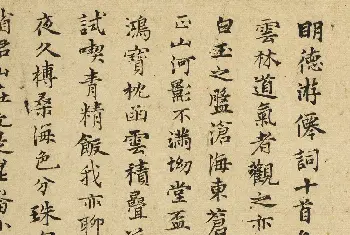 明德游僊詞十首
雲林道氣者觀之亦
白玉之盤滄海東蒼
正山河影不滿坳堂盃
鴻寶枕函雲積疊
試喫青精飯我亦聊
夜久榑桑海色分珠
君山